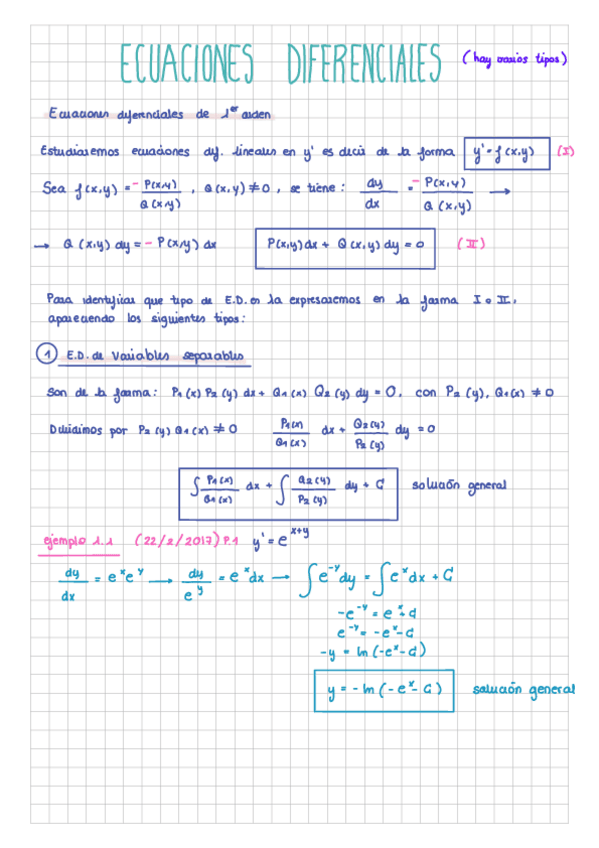 ECUACIONES DIFERENCIALES (hay varios tipos)
Ecuaciones diferenciales de 1er orden
Estudiaremos ecuaciones dif. lineales en y' es decir de la forma y' = f(x,y) (I)
Sea f(x,y) = - P(x,y) / Q(x,y) , Q(x,y) ≠ 0 , se tiene : dy/dx = - P(x,y) / Q(x,y) →
→ Q(x,y) dy = - P(x,y) dx P(x,y) dx + Q(x,y) dy = 0 (II)
Para identificar que tipo de E.D. es la expresaremos en la forma I o II,
apareciendo los siguientes tipos:
1 E.D. de variables separables
Son de la forma: P1(x) P2(y) dx + Q1(x) Q2(y) dy = 0, con P2(y), Q1(x) ≠ 0
Dividimos por P2(y) Q1(x) ≠ 0 P1(x)/Q1(x) dx + Q2(y)/P2(y) dy = 0
∫ P1(x)/Q1(x) dx + ∫ Q2(y)/P2(y) dy + C solución general
ejemplo 1.1 (22/2/2017) P.1 y' = e^x+y
dy/dx = e^x e^y → dy/e^y = e^x dx → ∫ e^-y dy = ∫ e^x dx + C
-e^-y = e^x + C
e^-y = -e^x - C
-y = ln(-e^x - C)
y = - ln(-e^x - C) solución general